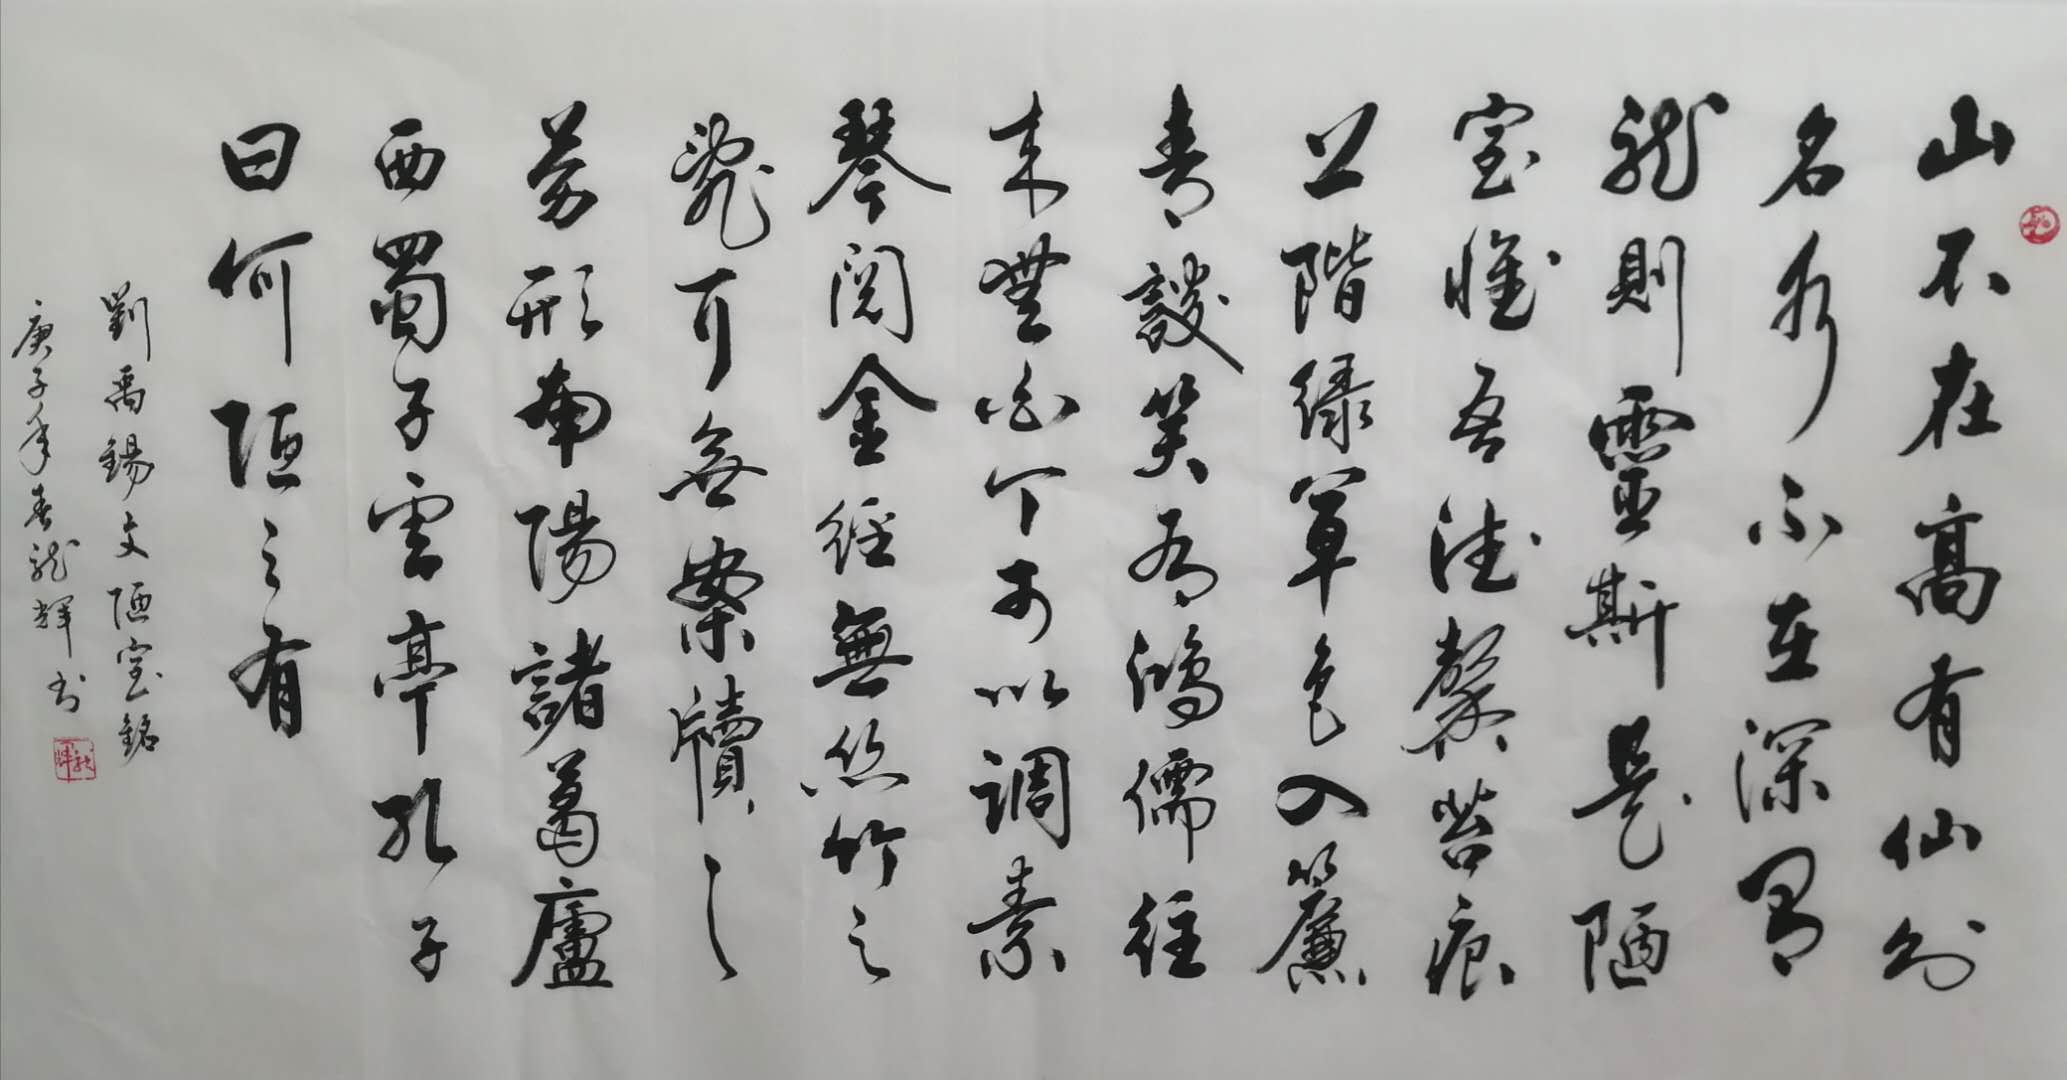 山不在高有仙则
名水不在深有
龍則靈斯是陋
室惟吾德馨苔痕
上階绿草色入簾
青談笑有鴻儒往
来無白丁可以調素
琴閲金經無丝竹之
亂耳無案牘之
劳形南陽諸葛廬
西蜀子雲亭孔子
曰何陋之有
劉禹錫文陋室銘
庚子年春龍輝书